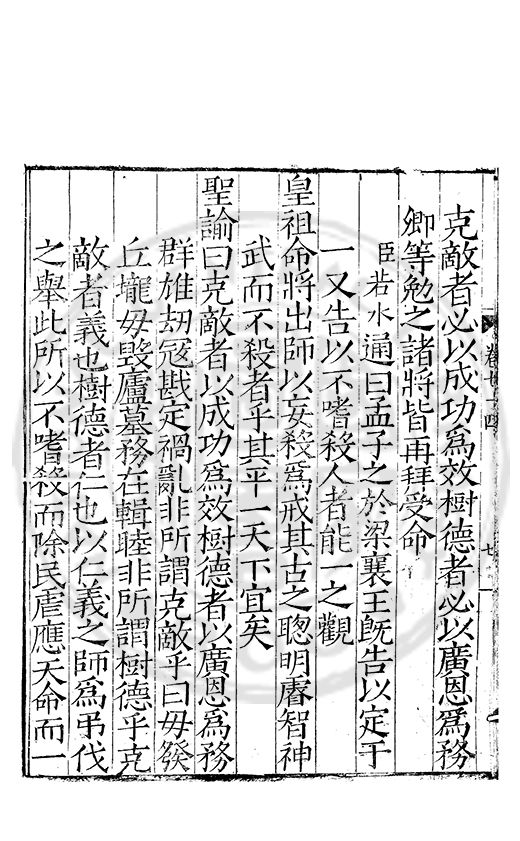 克敵者必以成功爲效樹德者必以廣恩爲務
卿等勉之諸將皆再拜受命
臣若水通曰孟子之於梁襄王旣告以定于
一又告以不嗜殺人者能一之觀
皇祖命將出師以妄殺爲戒其古之聰明睿智神
武而不殺者乎其平一天下宜矣
聖諭曰克敵者以成功爲效樹德者以廣恩爲務
群雄刼冦戡定禍亂非所謂克敵乎曰毋發
丘壠毋毀廬墓務在輯睦非所謂樹德乎克
敵者義也樹德者仁也以仁義之師爲弔伐
之舉此所以不嗜殺而除民虐應天命而一